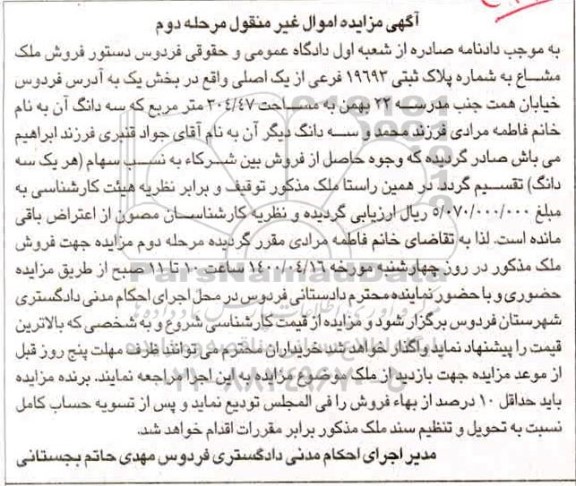 آگهی مزایده اموال غیر منقول مرحله دوم
به موجب دادنامه صادره از شعبه اول دادگاه عمومی و حقوقی فردوس دستور فروش ملک
مشاع به شماره پلاک ثبتی ۱۹۶۹۳ فرعی از یک اصلی واقع در بخش یک به آدرس فردوس
خیابان همت جنب مدرسه ۲۲ بهمن به مساحت ۳۰۴/۴۷ متر مربع که سه دانگ آن به نام
خانم فاطمه مرادی فرزند محمد و سه دانگ دیگر آن به نام آقای جواد قنبری فرزند ابراهیم
می باش صادر گردیده که وجوه حاصل از فروش بین شرکاء به نسب سهام (هر یک سه
دانگ) تقسیم گردد. در همین راستا ملک مذکور توقیف و برابر نظریه هیئت کارشناسی به
مبلغ ۵/۰۷۰/۰۰۰/۰۰۰ ریال ارزیابی گردیده و نظریه کارشناسان مصون از اعتراض باقی
مانده است. لذا به تقاضای خانم فاطمه مرادی مقرر گردیده مرحله دوم مزایده جهت فروش
ملک مذکور در روز چهارشنبه مورخه ۱۴۰۰/۰۴/۱۶ ساعت ۱۰ تا ۱۱ صبح از طریق مزایده
حضوری و با حضور نماینده محترم دادستانی فردوس در محل اجرای احکام مدنی دادگستری
شهرستان فردوس برگزار شود و مزایده از قیمت کارشناسی شروع و به شخصی که بالاترین
قیمت را پیشنهاد نماید واگذار خواهد شد. خریداران محترم می توانند ظرف مهلت پنج روز قبل
از موعد مزایده جهت بازدید از ملک موضوع مزایده به این اجرا مراجعه نمایند. برنده مزایده
باید حداقل ۱۰ درصد از بهاء فروش را فی المجلس تودیع نماید و پس از تسویه حساب کامل
نسبت به تحویل و تنظیم سند ملک مذکور برابر مقررات اقدام خواهد شد.
مدیر اجرای احکام مدنی دادگستری فردوس مهدی حاتم بجستانی